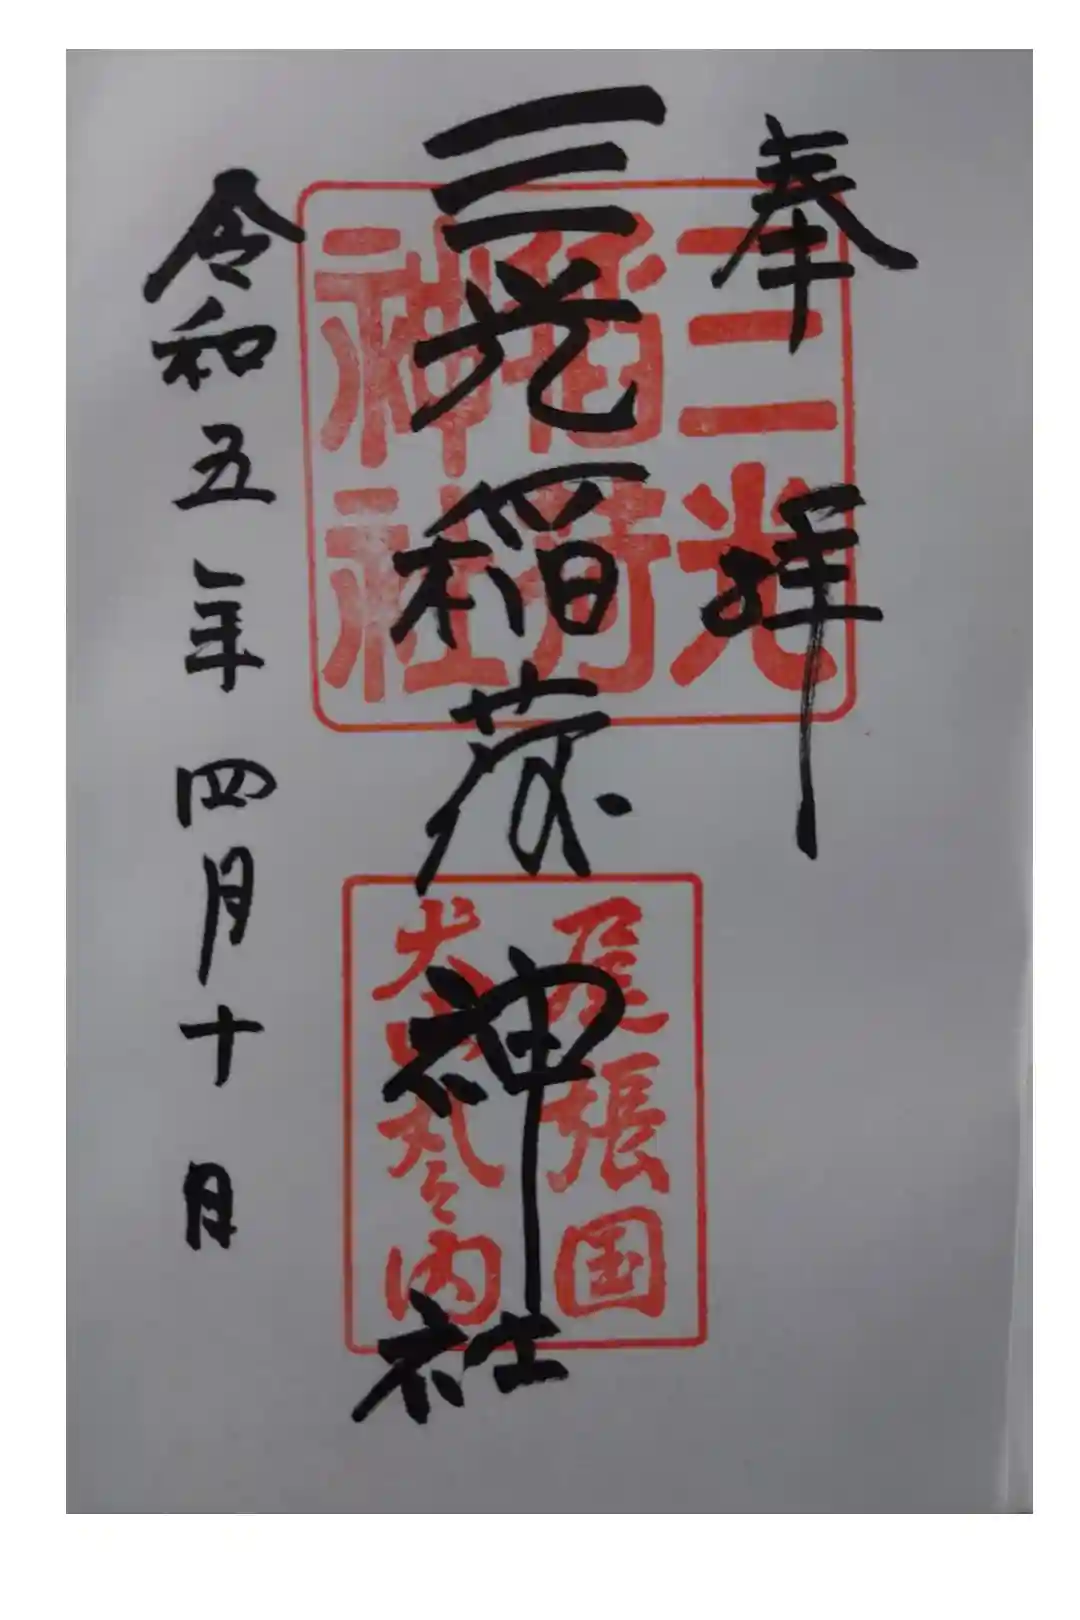 奉拝
三光稲荷神社
三光
稲荷
神社
尾張国
犬山丸之内
令和五年四月十日